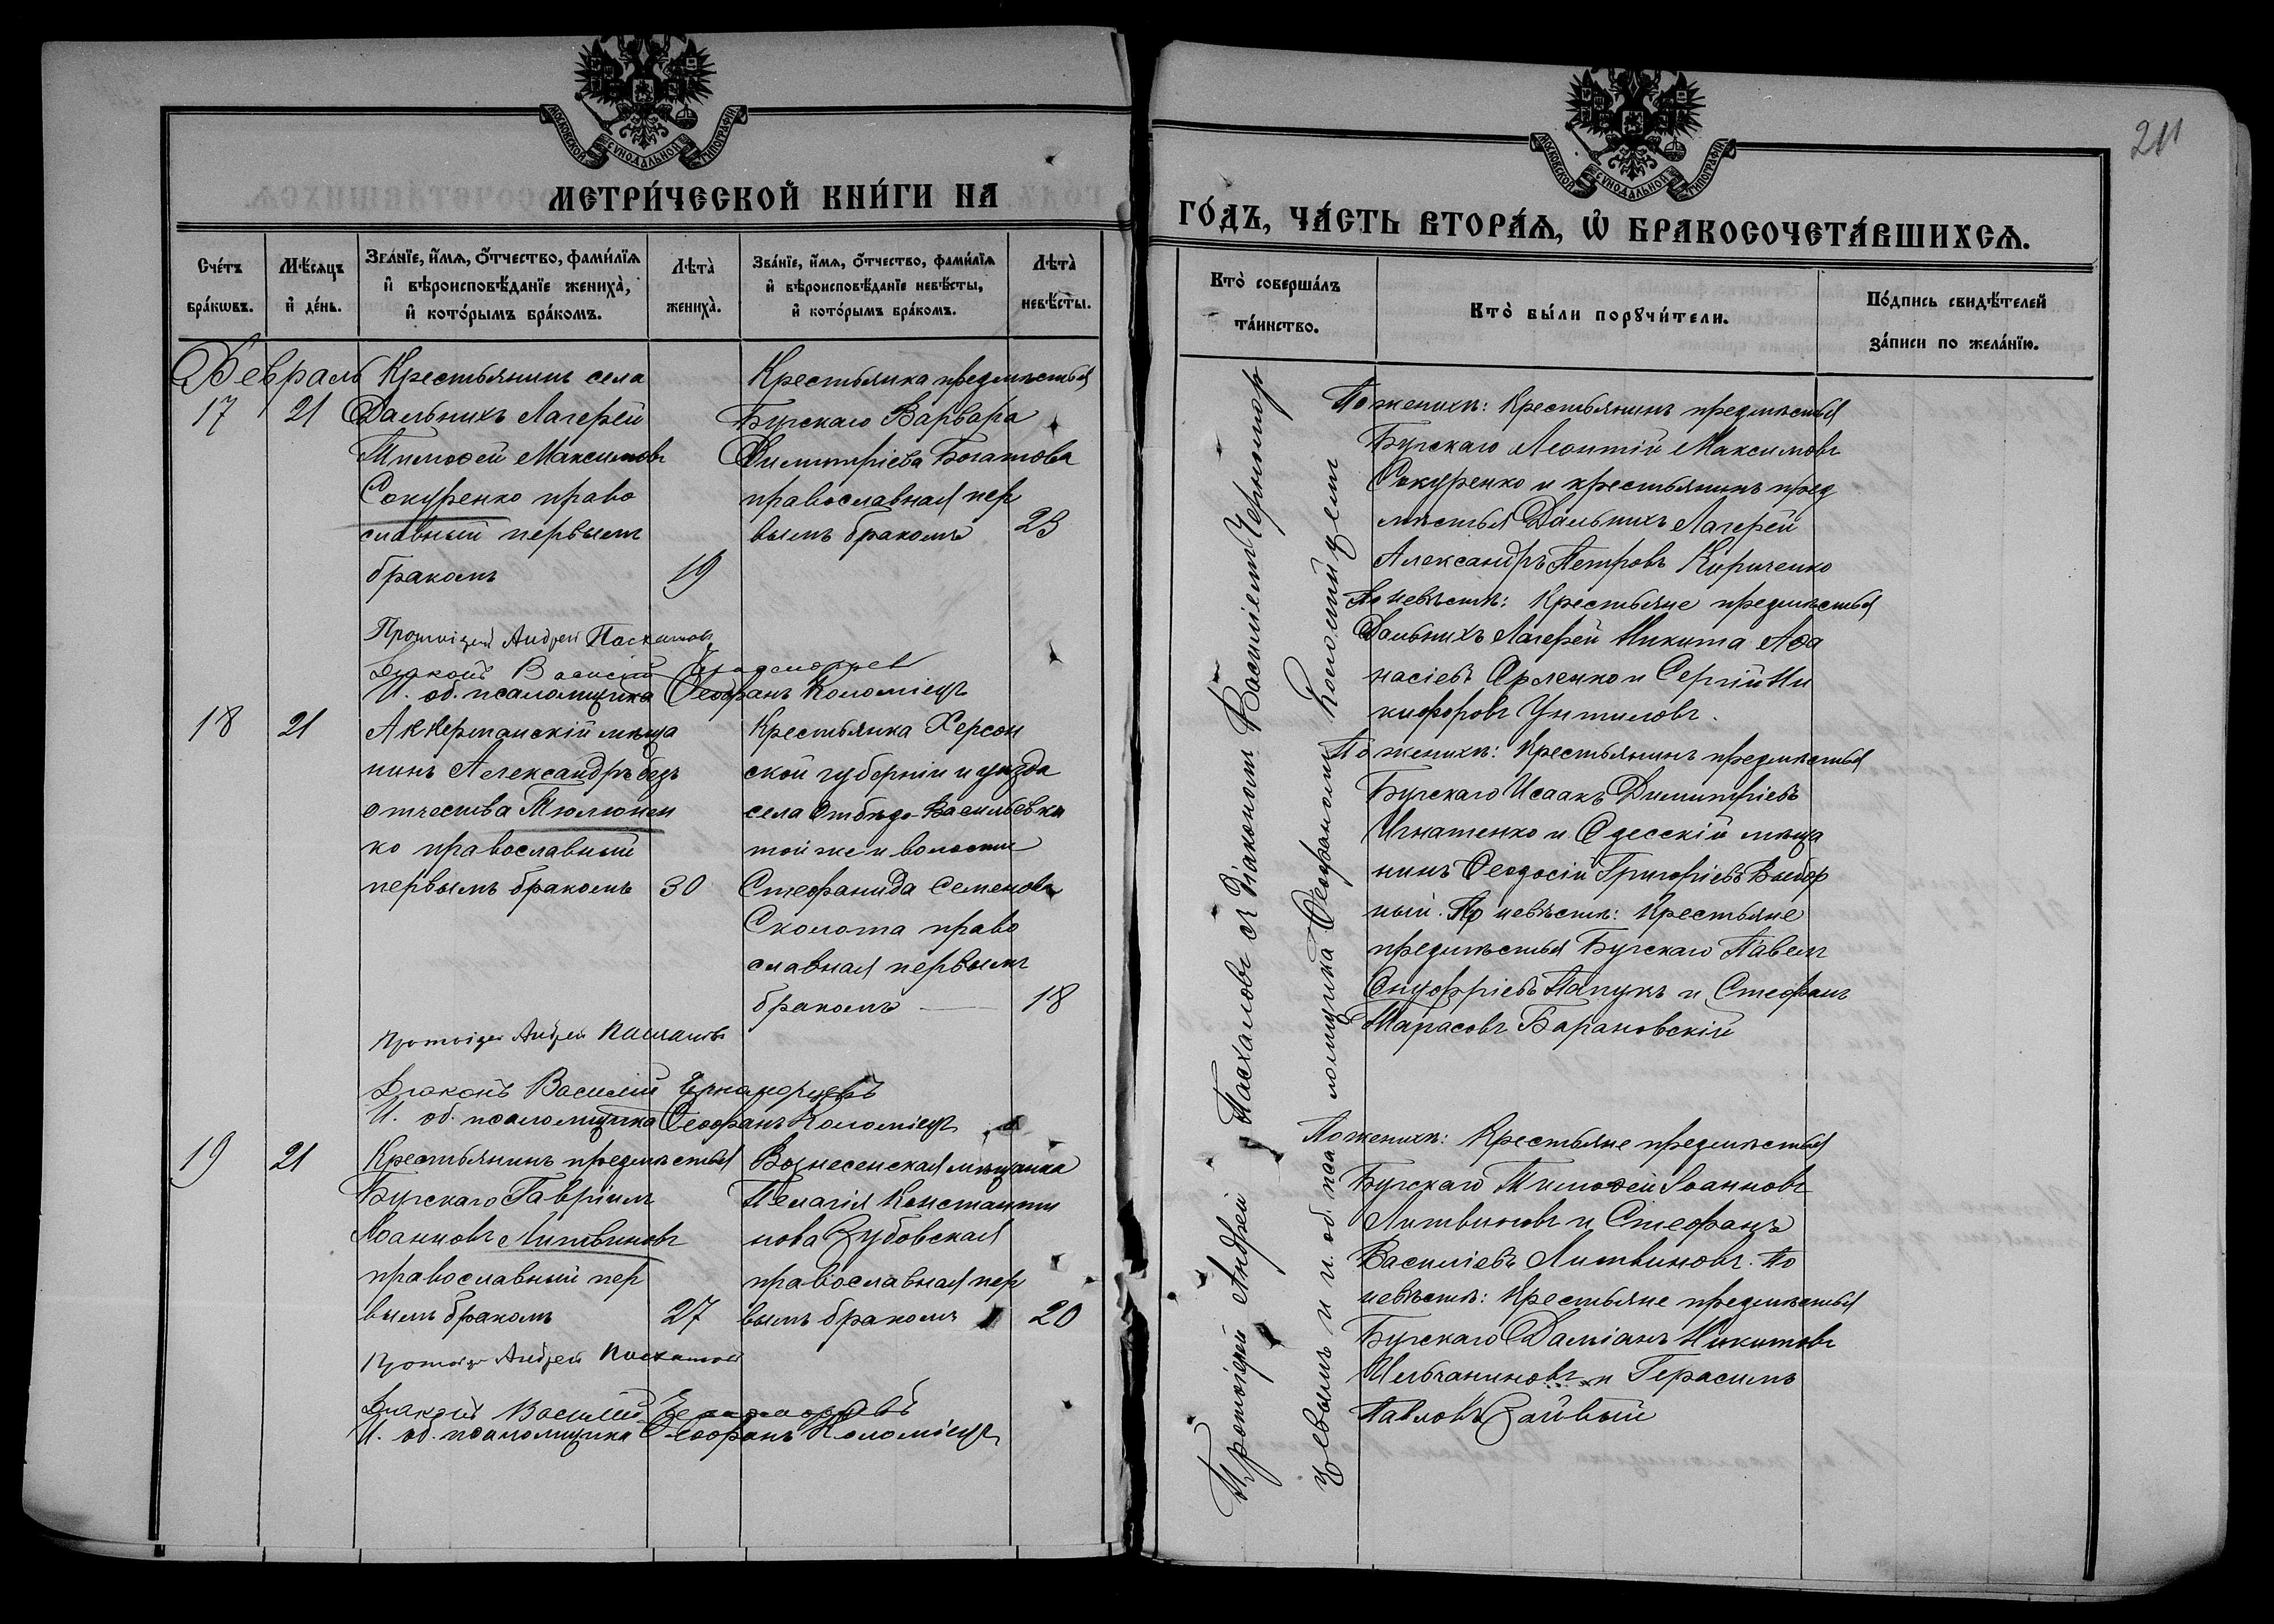 МОСКОВСКОЙ СѴНОДАЛЬНОЙ ТИПОГРАФІИ
МЕТРИ́ЧЕСКОЙ КНИ́ГИ НА
Сче́тъ бра́кѡвъ.
Мѣ́сяцъ и҆ де́нь.
Зва́нїе, и҆́мѧ, ѻ҆́тчество, фами́лїѧ
и҆ вѣроисповѣ́данїе жениха̀,
и҆ кото́рымъ бра́комъ.
Лѣта̀ жениха̀.
Зва́нїе, и҆́мѧ, ѻ҆́тчество, фами́лїѧ
и҆ вѣроисповѣ́данїе невѣ́сты,
и҆ кото́рымъ бра́комъ.
Лѣта̀ невѣ́сты.
Февраль
17
21
Крестьянинъ села
Дальнихъ Лагерей
Тимоѳей Максимовъ
Сокуренко право
славный первымъ
бракомъ
19
Крестьянка предмѣстья
Бугскаго Варвара
Димитріева Богатова
православная пер
вымъ бракомъ
23
Протоіерей Андрей Пасхаловъ
Діаконъ Василій
И. об. псаломщика Ѳеофанъ Коломіецъ
18
21
Аккерманскій мѣща
нинъ Александръ безъ
отчества Тюлюнен
ко православный
первымъ бракомъ
30
Крестьянка Херсон
ской губерніи и уѣзда
села Отбѣдо-Васильевки
той же и волости
Стефанида Семенова
Сколота право
славная первымъ
бракомъ
18
Протоіерей Андрей Пасхаловъ
Діаконъ Василій Черноморцевъ
И. об. псаломщика Ѳеофанъ Коломіецъ
19
21
Крестьянинъ предмѣстья
Бугскаго Гавріилъ
Іоанновъ Литвиновъ
православный пер
вымъ бракомъ
27
Вознесенская мѣщанка
Пелагія Константи
нова Зубовская
православная пер
вымъ бракомъ
20
Протоіерей Андрей Пасхаловъ
Діаконъ Василій
И. об. псаломщика Ѳеофанъ Коломіецъ
211
МОСКОВСКОЙ СѴНОДАЛЬНОЙ ТИПОГРАФІИ
ГО́ДЪ, ЧА́СТЬ ВТОРА́Ѧ, Ѽ БРАКОСОЧЕТА́ВШИХСѦ.
Кто̀ соверша́лъ
та́инство.
Кто̀ бы́ли порꙋчи́тели.
По́дпись свидѣ́телей
за́писи по жела́нїю.
Протоіерей Андрей Пасхаловъ съ Діакономъ Василіемъ Черномор
цевымъ и и. об. псаломщика Ѳеофаномъ Коломійцемъ
По женихѣ: Крестьянинъ предмѣстья
Бугскаго Леонтій Максимовъ
Сокуренко и крестьянинъ пред
мѣстья Дальнихъ Лагерей
Александръ Петровъ Кириченко
По невѣстѣ: Крестьяне предмѣстья
Дальнихъ Лагерей Никита Аѳа
насіевъ Орленко и Сергій Ни
кифоровъ Унтиловъ.
По женихѣ: Крестьянинъ предмѣстья
Бугскаго Исаакъ Димитріевъ
Игнатенко и Одесскій мѣща
нинъ Ѳеодосій Григоріевъ Выбор
ный. По невѣстѣ: Крестьяне
предмѣстья Бугскаго Павелъ
Онуфріевъ Папукъ и Стефанъ
Тарасовъ Барановскій
По женихѣ: Крестьяне предмѣстья
Бугскаго Тимоѳей Іоанновъ
Литвиновъ и Стефанъ
Василіевъ Литвиновъ. По
невѣстѣ: Крестьяне предмѣстья
Бугскаго Даміанъ Никитовъ
Ильчаниновъ и Герасимъ
Павловъ Зайвый